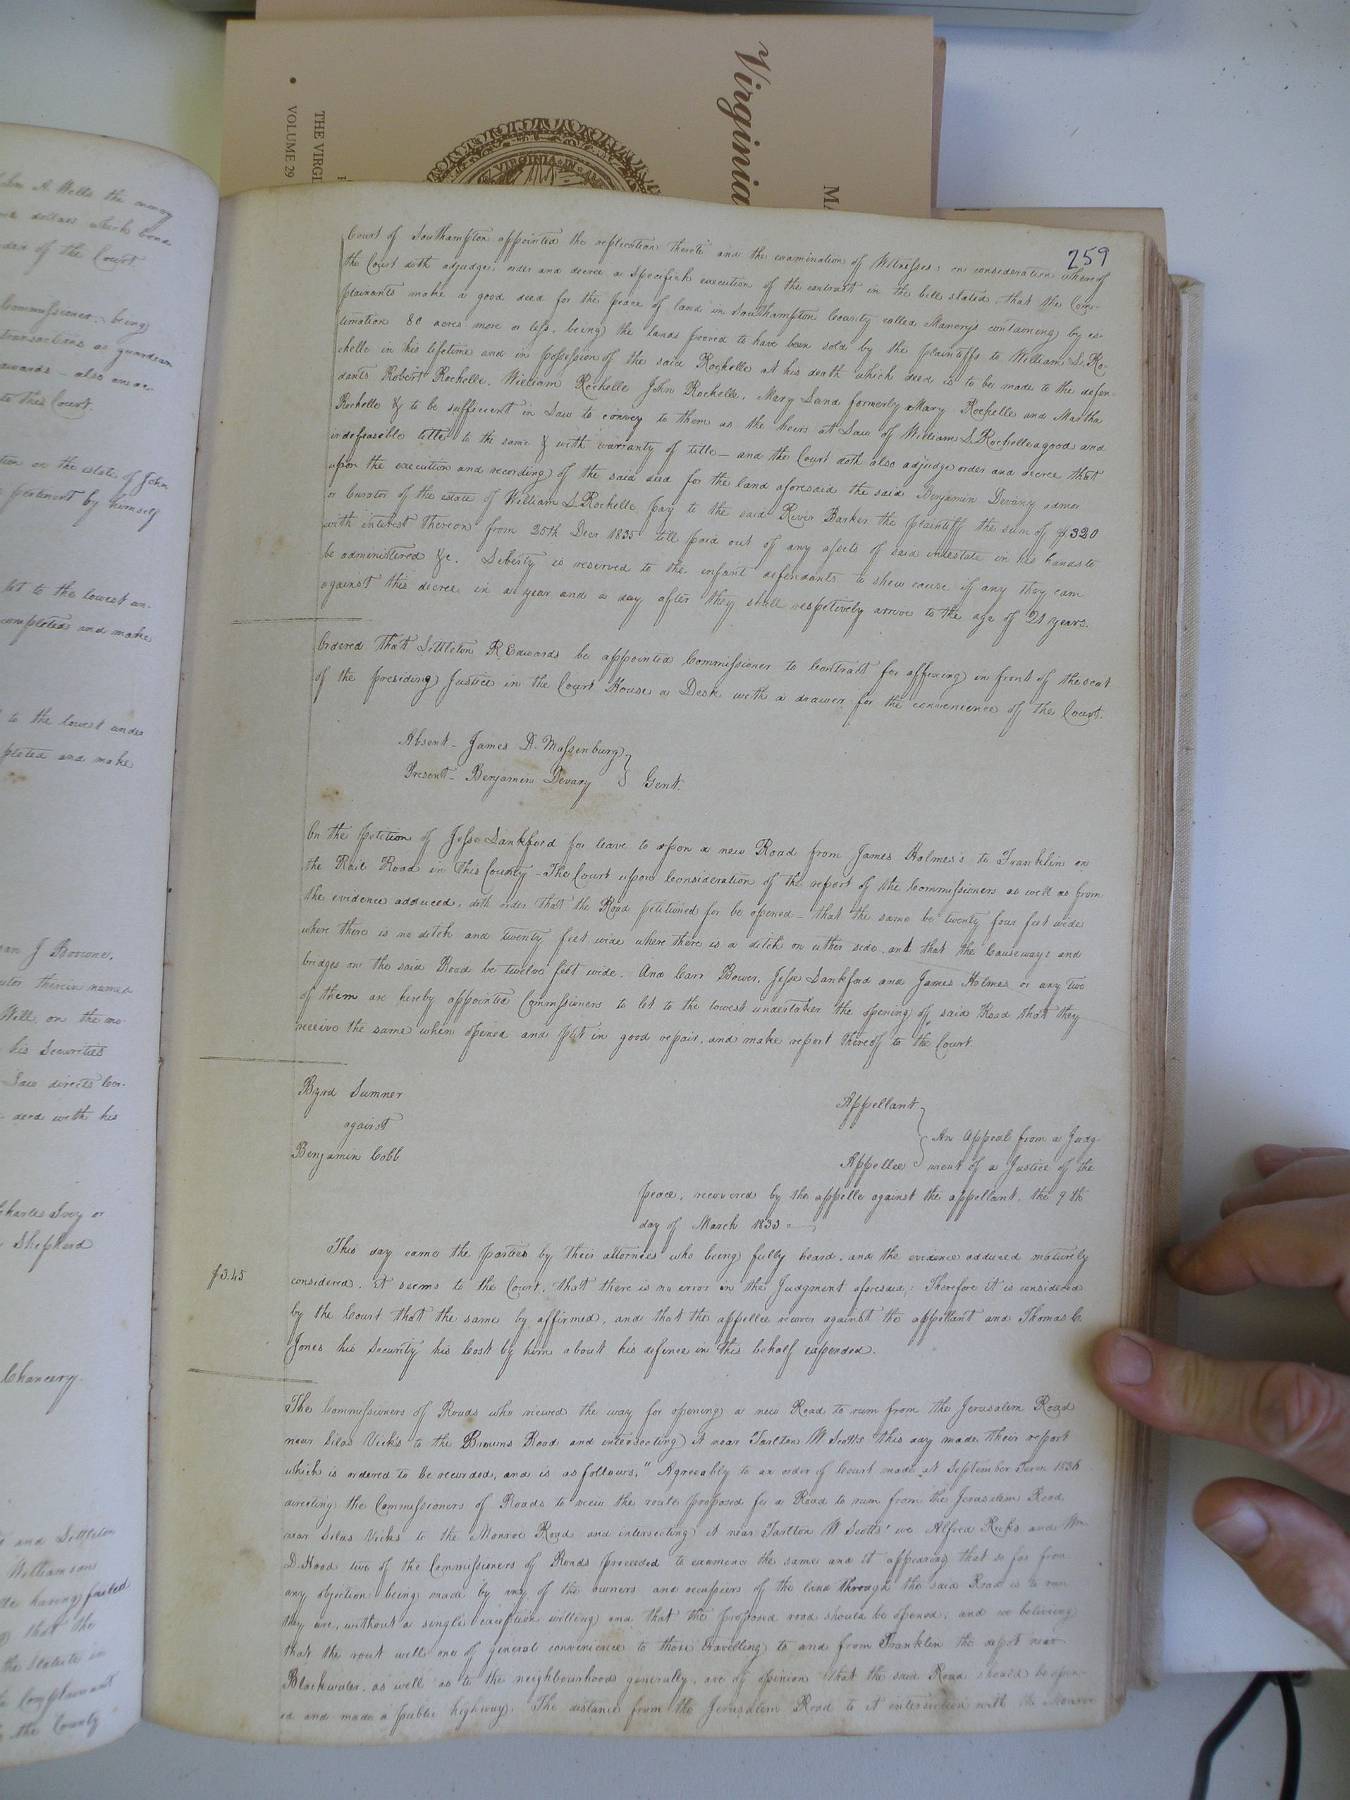 Virginia
MA
THE VIRGI
VOLUME 29
VIRGINIA IN
259
Court of Southampton appointed the replication thereto and the examination of Witnesses; on consideration whereof
the Court doth adjudge, order and decree a specifick execution of the contract in the bill stated, that the Com-
plainants make a good deed for the peace of land in Southampton County called Manery's containing by es-
timation 80 acres more or less, being the lands proved to have been sold by the plaintiffs to William S. Ro-
chelle in his lifetime and in possession of the said Rochelle at his death which deed is to be made to the defen-
dants Robert Rochelle, William Rochelle John Rochelle, Mary Land formerly Mary Rochelle and Martha
Rochelle & to be sufficient in Law to convey to them as the heirs at Law of William S. Rochelle a good and
indefeasable title to the same & with warranty of title – and the Court doth also adjudge order and decree that
upon the execution and recording of the said deed for the land aforesaid the said Benjamin Devany admr
or Curator of the estate of William S. Rochelle pay to the said River Barker the plaintiff the sum of $320
with interest thereon from 25th Decr 1835 till paid out of any assets of said intestate in his hands to
be administered &c. Liberty is reserved to the infant defendants to shew cause if any they can
against this decree in a year and a day after they shall respetively arrive to the age of 21 years.
Ordered that Littleton R. Edwards be appointed Commissioner to Contract for affixing in front of the seat
of the presiding Justice in the Court House a Desk with a drawer for the convenience of the Court.
Absent – James D. Massenburg }
Present – Benjamin Devany } Gent.
On the petition of Jesse Lankford for leave to open a new Road from James Holmes's to Franklin on
the Rail Road in this County – The Court upon Consideration of the report of the Commissioners as well as from
the evidence adduced, doth order that the Road petitioned for be opened – that the same be twenty four feet wide
where there is no ditch and twenty feet wide where there is a ditch on either side, and that the Causeways and
bridges on the said Road be twelve feet wide. And Carr Bower, Jesse Lankford and James Holmes, or any two
of them are hereby appointed Commissioners to let to the lowest undertaker the opening of said Road that they
receive the same when opened and put in good repair, and make report thereof to the Court.
Byrd Sumner Appellant }
against
Benjamin Cobb Appellee } An Appeal from a Judg-
ment of a Justice of the
peace, recovered by the appelle against the appellant, the 9th
day of March 1833
This day came the parties by their attornies who being fully heard, and the evidence adduced maturely
$3.45 considered, it seems to the Court, that there is no error in the Judgment aforesaid; Therefore it is considered
by the Court that the same by affirmed, and that the appellee recover against the appellant and Thomas C.
Jones his Security his Cost by him about his defence in this behalf expended.
The Commissioners of Roads who viewed the way for opening a new Road to run from the Jerusalem Road
near Silas Vick's to the Browns Road and intersecting it near Tarlton W Scotts this day made their report
which is ordered to be recorded, and is as follows, "Agreeably to an order of Court made at September Term 1836
directing the Commissioners of Roads to view the route proposed for a Road to run from the Jerusalem Road
near Silas Vicks to the Monroe Road and intersecting it near Tarlton W Scotts' we Alfred Ricks and Wm
D. Hood two of the Commissioners of Roads proceeded to examine the same and it appearing that so far from
any objection being made by any of the owners and occupiers of the land through the said Road is to run
they are, without a single exception willing and that the proposed road should be opened, and we believing
that the rout will one of general convenience to those travelling to and from Franklin the depot near
Blackwater, as well as to the neighbourhood generally, are of opinion that the said Road should be open-
ed and made a public highway. The distance from the Jerusalem Road to it intersection with the Monroe